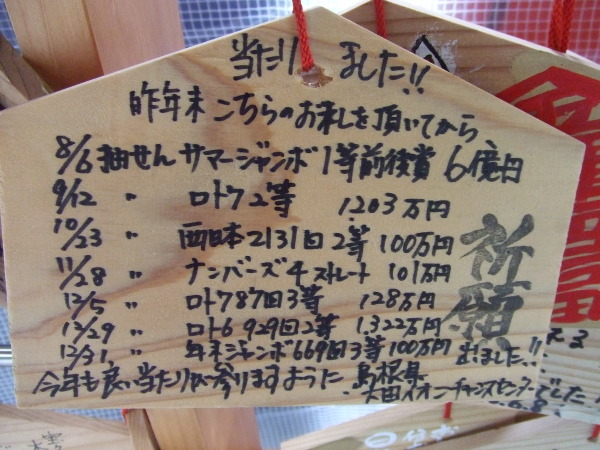 当たりました!!
昨年末こちらのお札を頂いてから
8/6 抽せん サマージャンボ1等前後賞 6億円
9/12 〃 ロト7 2等 1203万円
10/23 〃 西日本2131回2等 100万円
11/28 〃 ナンバーズ4 ストレート 101万円
12/5 〃 ロト7 87回3等 128万円
12/29 〃 ロト6 929回2等 1,322万円
12/31 〃 年末ジャンボ669回3等100万円 出ました!!
今年も良い当たりが参りますように 島根県
大田イオンチャンスセンター
祈願
でした!